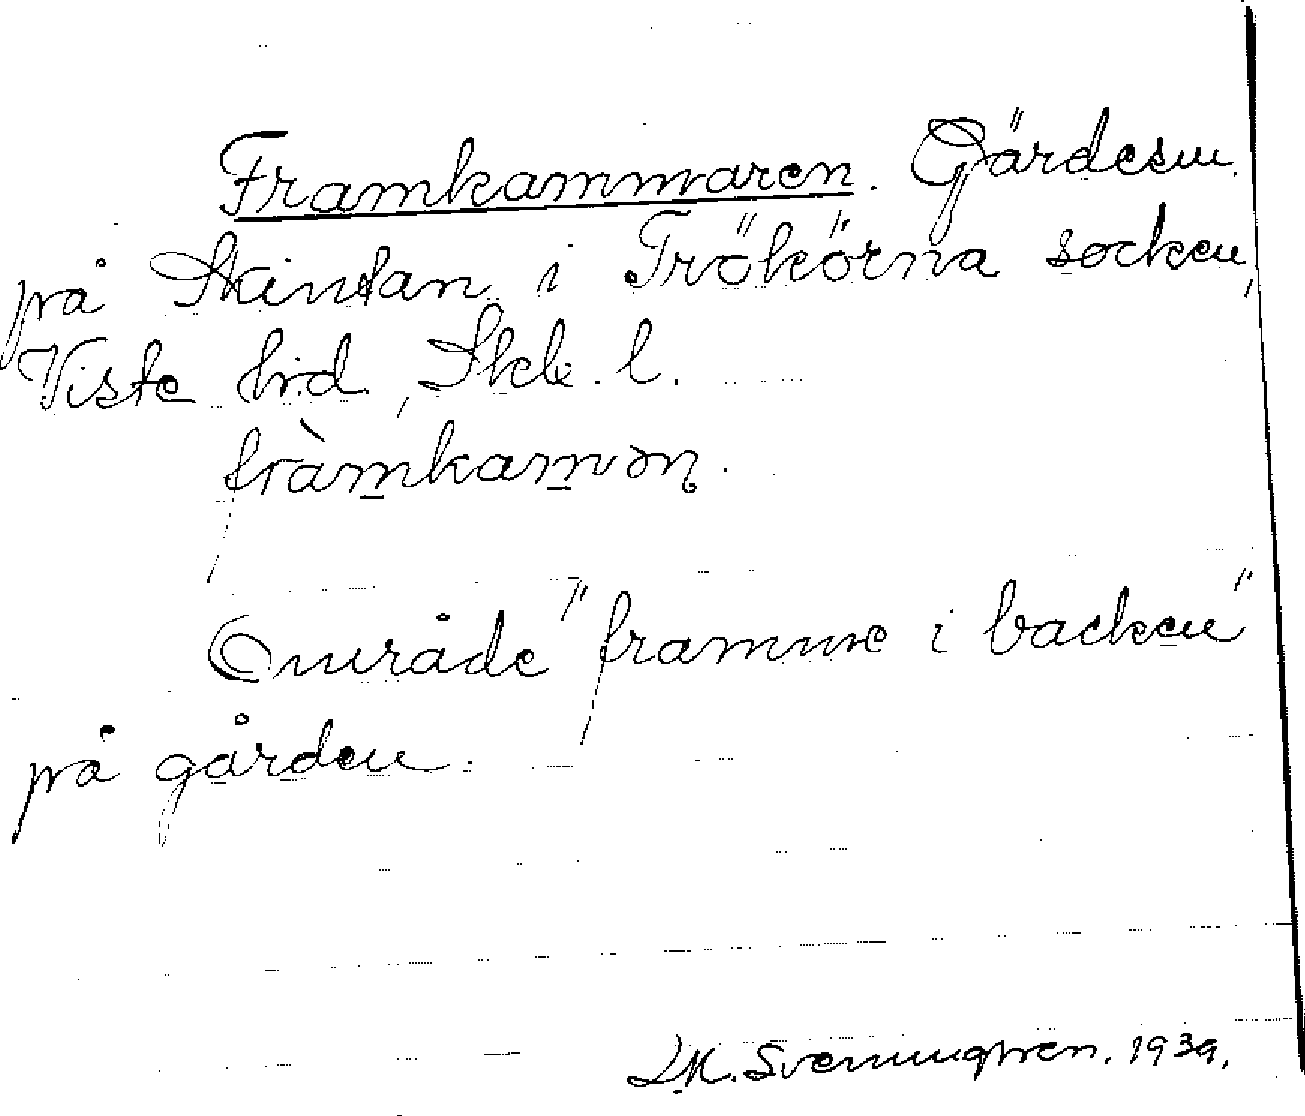 Framkammaren. Gärdesn.
på Skintan i Trökörna socken,
Viste hrd, Skb. l.
fràmkamən.
Område "framme i backen"
på gården.
1939.